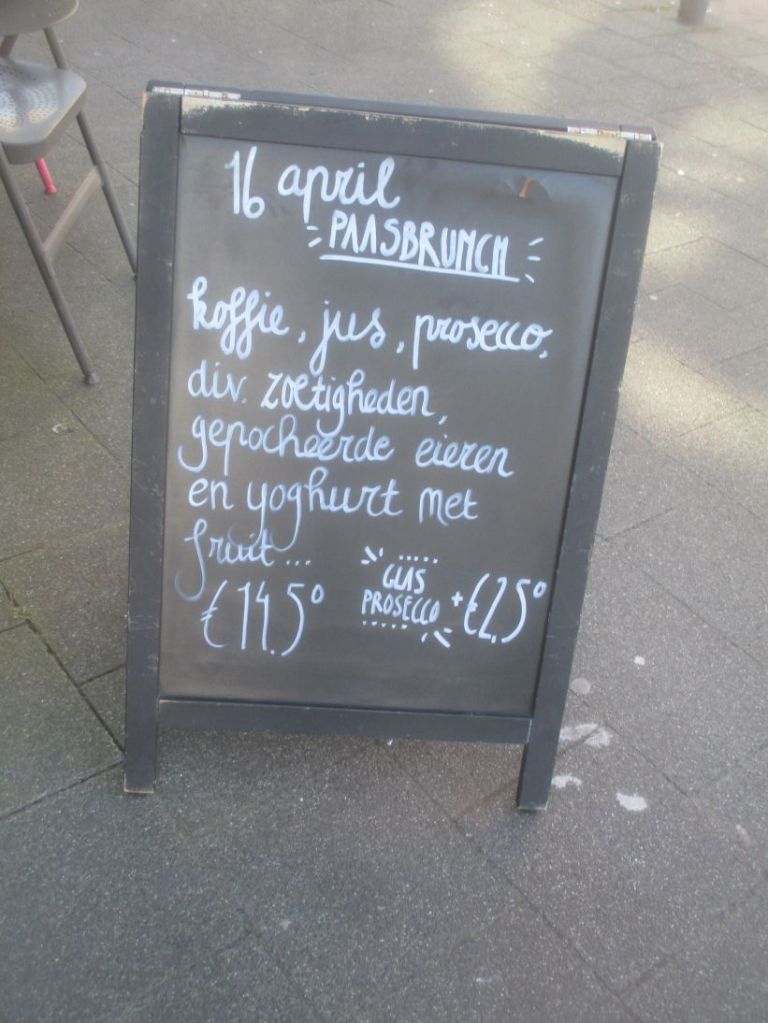 16 april
PAASBRUNCH
koffie, jus, prosecco,
div. zoetigheden,
gepocheerde eieren
en yoghurt met
fruit...
€14.50
GLAS
PROSECCO + €2,50